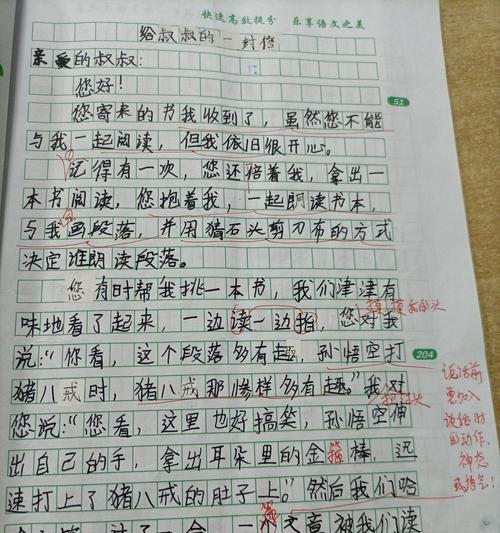 快速高效提分 乐享语文之美
给叔叔的一封信
亲爱的叔叔：
您好！
51
您寄来的书我收到了，虽然您不能
与我一起阅读，但我依旧很开心。
记得有一次，您还陪着我，拿出一
本书阅读，您抱着我，一起朗读书本，
与我画段落，并用猜石头剪刀布的方式
决定谁朗读段落。
您有时帮我挑一本书，我们津津有
味地看了起来，一边读一边指，您对我
说：“你看，这个段落多有趣，孙悟空打
204
猪八戒时，猪八戒那惨样多有趣。”我对
您说：“您看，这里也好搞笑，孙悟空伸
出自己的手，拿出耳朵里的金箍棒，迅
速打上了猪八戒的肚子上。”然后我们哈
文章被我们读
说话前
要加入
说话时
的动作，
神态
或语气！